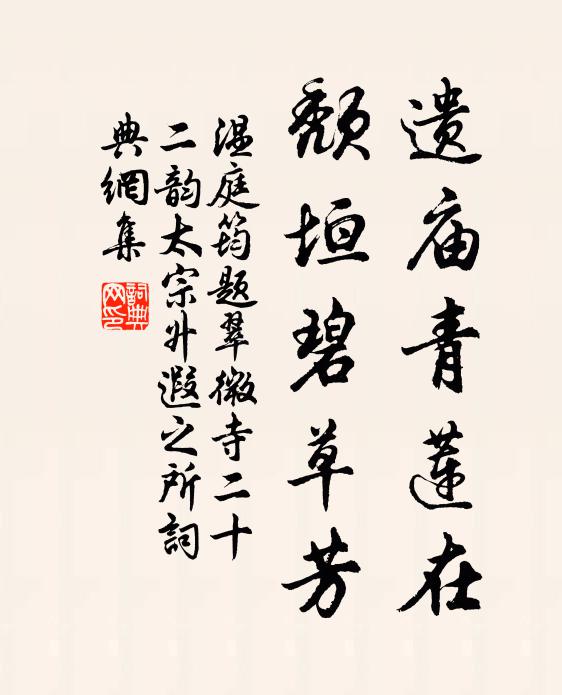 遗庙青莲在
颓垣碧草芳
温庭筠题翠微寺二十
二韵太宗升遐之所詞
典網集
詞典网印